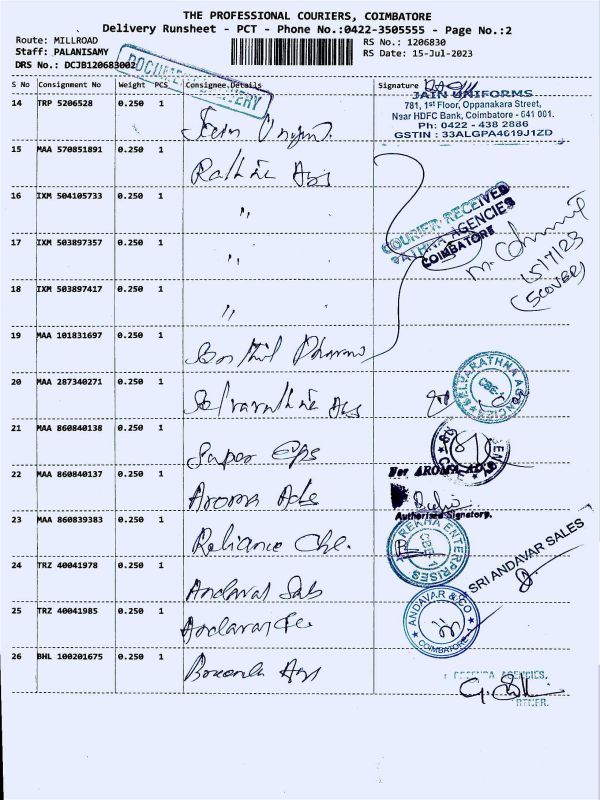 THE PROFESSIONAL COURIERS, COIMBATORE
Delivery Runsheet - PCT - Phone No.:0422-3505555 - Page No.:2
Route: MILLROAD
RS No.: 1206830
Staff: PALANISAMY
RS Date: 15-Jul-2023
DRS No.: DCJB120683002
DOCUMENT DELIVERY
S No Consignment No Weight PCS Consignee.Details Signature
14 TRP 5206528 0.250 1
JAIN UNIFORMS
781, 1st Floor, Oppanakara Street,
Near HDFC Bank, Coimbatore - 641 001.
Ph: 0422 - 438 2886
GSTIN : 33ALGPA4619J1ZD
15 MAA 570851891 0.250 1
16 IXM 504105733 0.250 1 "
COURIER RECEIVED
RATHNA AGENCIES
COIMBATORE
15/7/23
(5 COVER)
17 IXM 503897357 0.250 1 "
18 IXM 503897417 0.250 1 "
19 MAA 101831697 0.250 1 Senthil Pharma
20 MAA 287340271 0.250 1
SELVARATHNA AGENCIES
CBE-1
21 MAA 860840138 0.250 1 Super
22 MAA 860840137 0.250 1 Aroma Ads
For AROMA ADS
Authorised Signatory.
23 MAA 860839383 0.250 1 Reliance Che.
REKHA ENTERPRISES
CBE-1
24 TRZ 40041978 0.250 1 Andavar Sal
SRI ANDAVAR SALES
25 TRZ 40041985 0.250 1 Andavar
ANDAVAR & CO
COIMBATORE
26 BHL 100201675 0.250 1
AGENCIES,